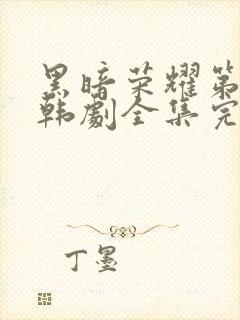 黑暗荣耀第
韩劇全集完
丁墨